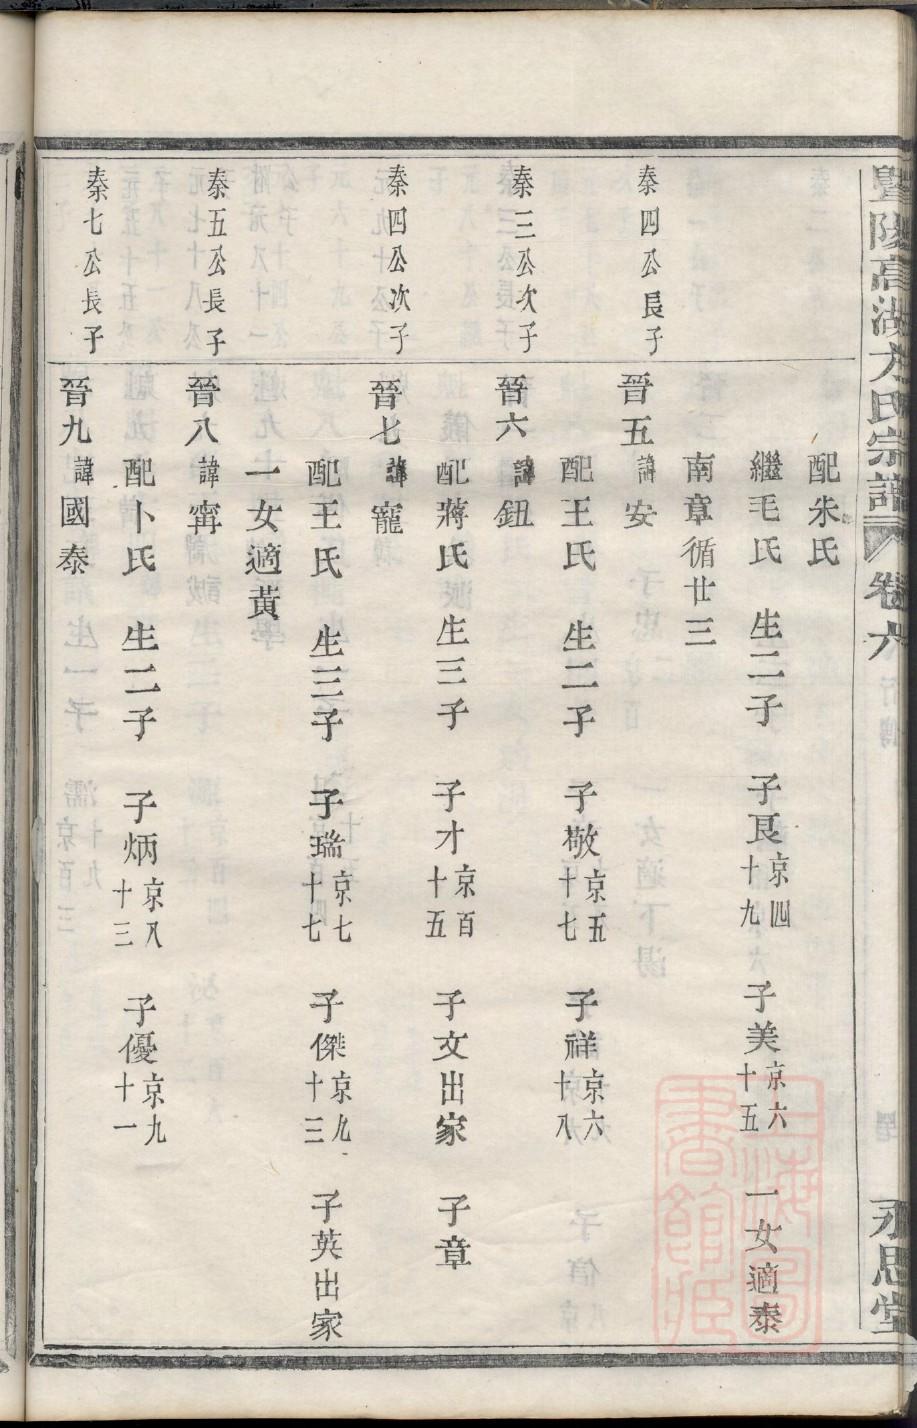 暨陽高湖方氏宗譜 卷六 永思堂
配朱氏
繼毛氏 生二子 子艮京四十九 子美京六十五 一女適泰
南章循廿三
秦四公長子
晉五諱安
配王氏 生二子 子敬京五十七 子祥京六十八
秦三公次子
晉六諱鈕
配蔣氏 生三子 子才京百十五 子文出家 子章
秦四公次子
晉七諱寵
配王氏 生三子 子瑞京七十七 子傑京九十三 子英出家
一女適黃
秦五公長子
晉八諱甯
配卜氏 生二子 子炳京八十三 子優京九十一
秦七公長子
晉九諱國泰